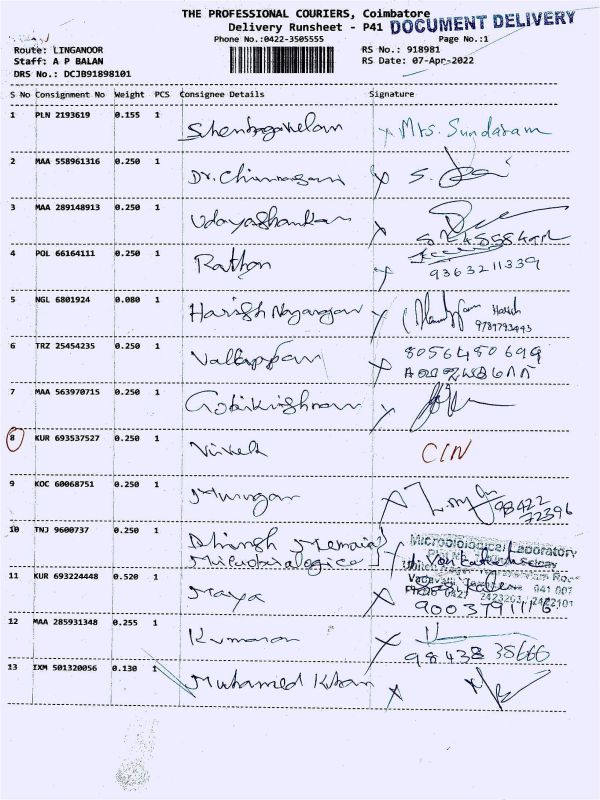 THE PROFESSIONAL COURIERS, Coimbatore
Delivery Runsheet - P41 DOCUMENT DELIVERY
Phone No.:0422-3505555 Page No.:1
Route: LINGANOOR RS No.: 918981
Staff: A P BALAN RS Date: 07-Apr-2022
DRS No.: DCJB91898101
S No Consignment No Weight PCS Consignee Details Signature
1 PLN 2193619 0.155 1 Shenbagavelan Mrs. Sundaram
2 MAA 558961316 0.250 1 Dr. S.
3 MAA 289148913 0.250 1 Udayashankar
4 POL 66164111 0.250 1 Rathan
9363211339
5 NGL 6801924 0.080 1 Harish Narayan Harish
9787793443
6 TRZ 25454235 0.250 1 Vallappan 8056480699
7 MAA 563970715 0.250 1 Gobikrishnan
8 KUR 693537527 0.250 1 Vivek C/N
9 KOC 60068751 0.250 1 Murugan 98422
72396
10 TNJ 9600737 0.250 1 Dhinesh
Microbiological Laboratory
11 KUR 693224448 0.520 1 Maya
9003791116
12 MAA 285931348 0.255 1 Kumaran
98438 38666
13 IXM 501320056 0.130 1 Muhamed Khan